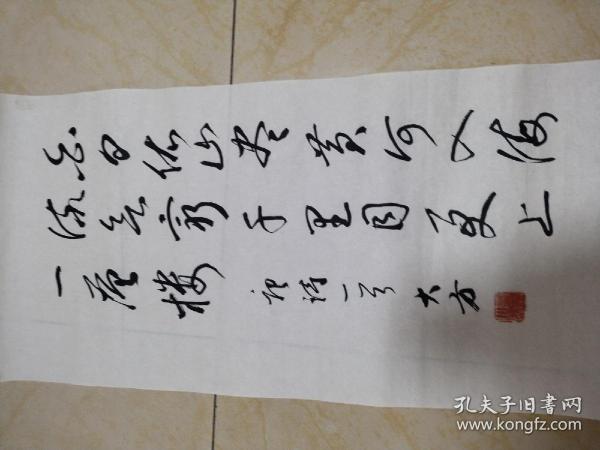 白日依山尽黄河入海
流欲穷千里目更上
一层楼 诗一首 大方
孔夫子旧書网
www.kongfz.com